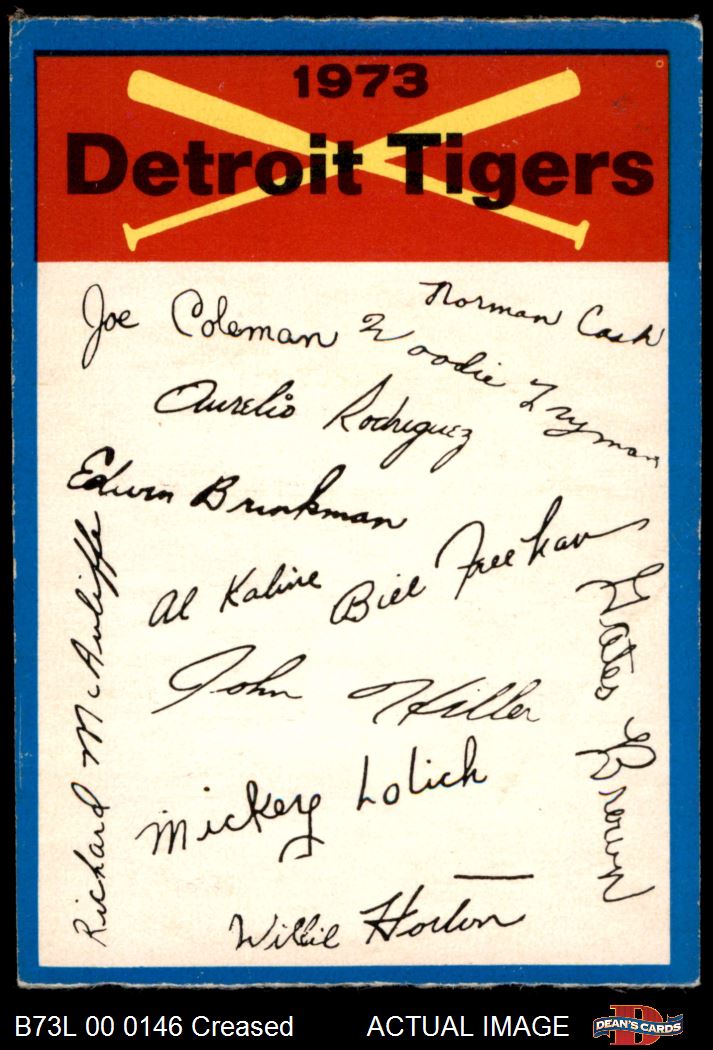 1973
Detroit Tigers
Joe Coleman
Norman Cash
Woodie Fryman
Aurelio Rodriguez
Edwin Brinkman
Al Kaline
Bill Freehan
Richard McAuliffe
Gates Brown
John Hiller
Mickey Lolich
Willie Horton
B73L 00 0146 Creased
ACTUAL IMAGE
D
DEAN'S CARDS